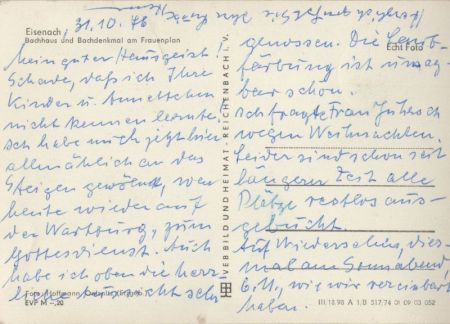 Eisenach, 31.10.76
Bachhaus und Bachdenkmal am Frauenplan
Mein guter Hausgeist!
Schade, daß ich Ihre
Kinder u. Annettchen
nicht kennen lernte.
Ich habe mich jetzt hier
allmählich an das
Steigen gewöhnt, war
heute wieder auf
der Wartburg, zum
Gottesdienst. Auch
habe ich oben die herr-
liche Aussicht sehr
Foto: Hoffmann,
EVP M -,20
VEB BILD UND HEIMAT · REICHENBACH i. V.
genossen. Die Laub-
färbung ist unsag-
Echt Foto
bar schön.
Ich fragte Frau
wegen Weihnachten.
Leider sind schon seit
längerer Zeit alle
Plätze restlos aus-
gebucht.
Auf Wiedersehen, dies-
mal am Sonnabend,
6.11., wie wir vereinbart
haben.
III.18.98 A 1.B 517/74 01 09 03 052
Herzlichst grüßt Sie